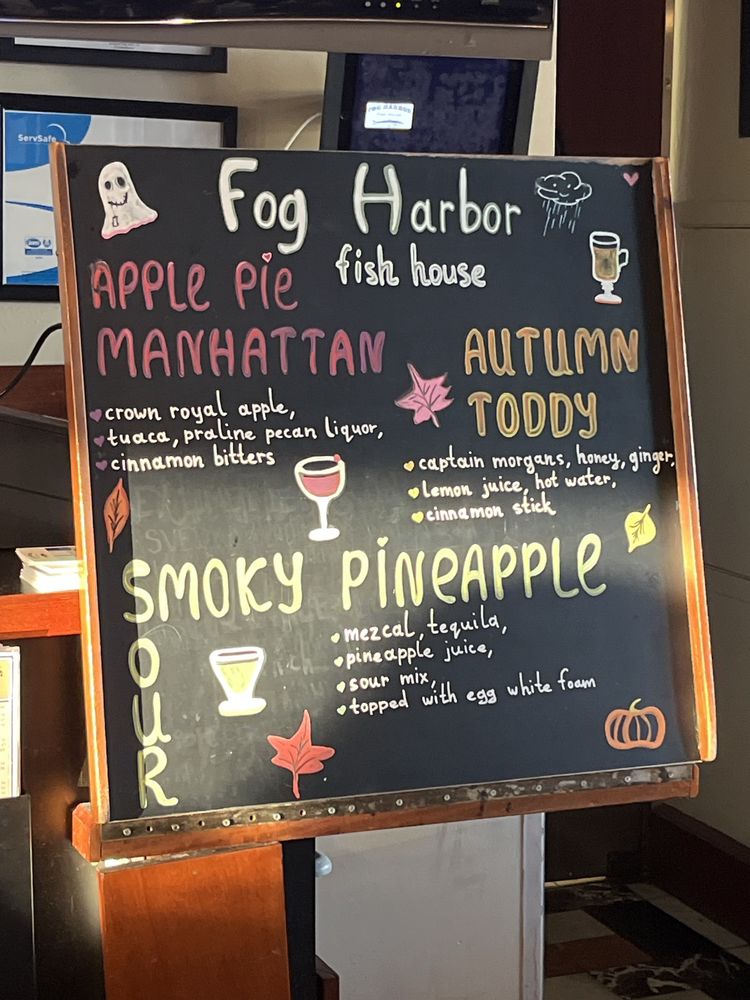 ServSafe
FOG HARBOR
Fog Harbor
fish house
APPLE PIE
MANHATTAN
crown royal apple,
tuaca, praline pecan liquor,
cinnamon bitters
AUTUMN
TODDY
captain morgans, honey, ginger,
lemon juice, hot water,
cinnamon stick
SMOKY PINEAPPLE
SOUR
mezcal, tequila,
pineapple juice,
sour mix,
topped with egg white foam